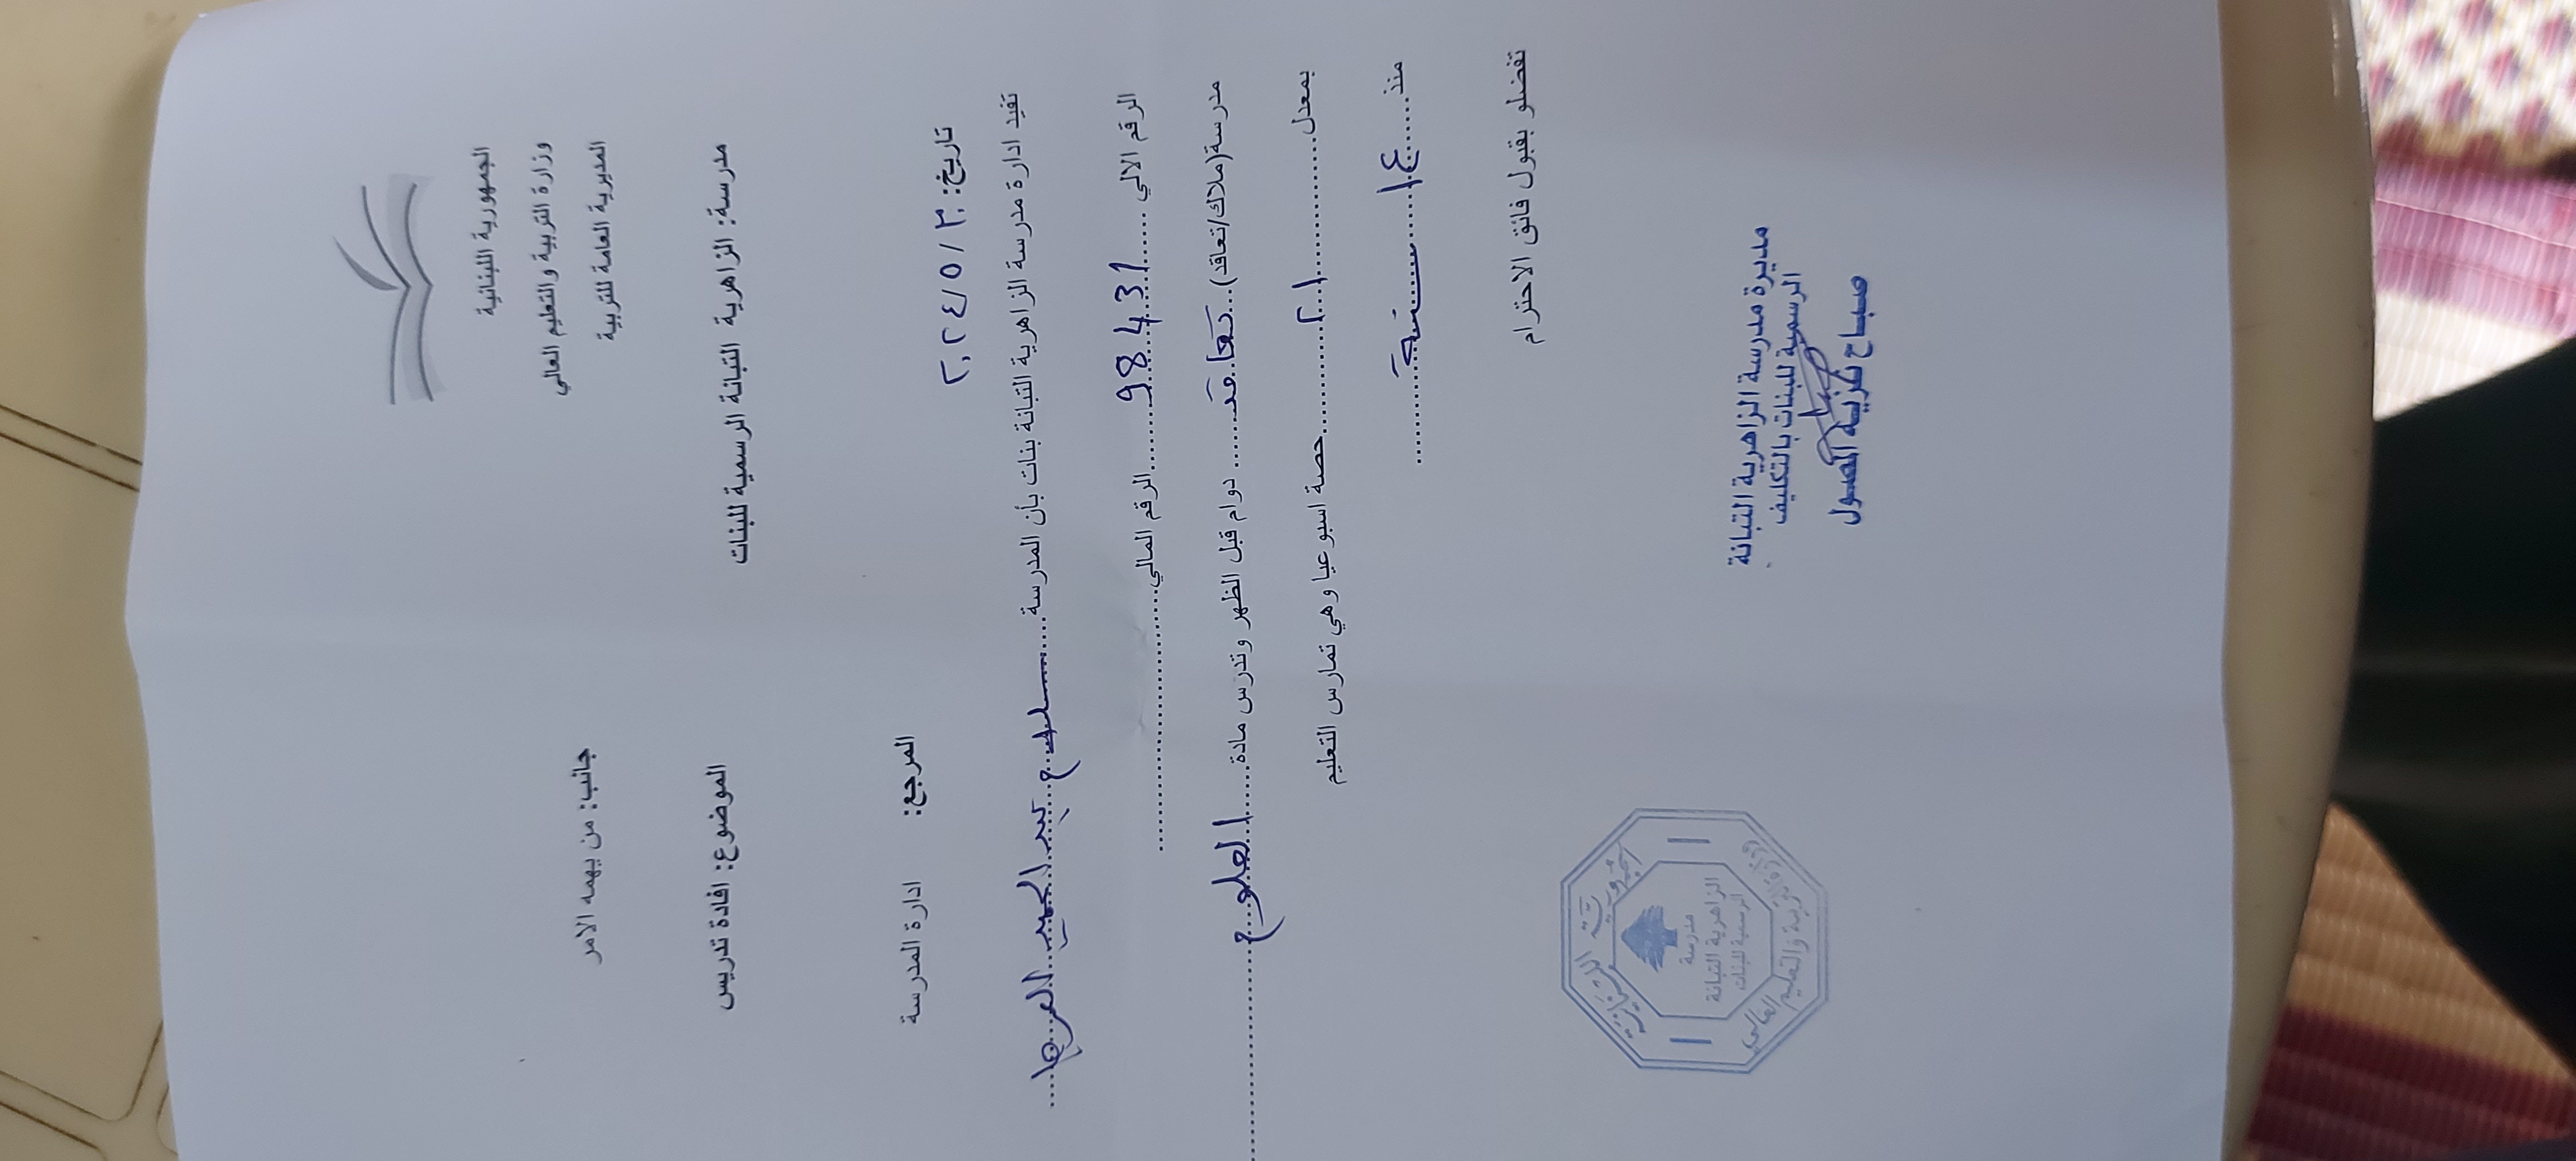 الجمهورية اللبنانية
وزارة التربية والتعليم العالي
المديرية العامة للتربية
جانب: من يهمه الامر
مدرسة: الزاهرية التبانة الرسمية للبنات
الموضوع: افادة تدريس
المرجع: ادارة المدرسة
تاريخ: ٢٠٢٤/٥/٣٠
تفيد ادارة مدرسة الزاهرية التبانة بنات بأن المدرسة ......... عبد الحميد
الرقم الالي ......98431...........الرقم المالي..............................
مدرسة(ملاك/تعاقد)...تعاقد........ دوام قبل الظهر وتدرس مادة......العلوم..........................
بمعدل....................٢١................حصة اسبوعيا وهي تمارس التعليم
منذ.......١٤.......سنة...............
تفضلو بقبول فائق الاحترام
مديرة مدرسة الزاهرية التبانة
الرسمية للبنات بالتكليف
صباح نزيه
الجمهورية اللبنانية
مدرسة
الزاهرية التبانة
الرسمية للبنات
وزارة التربية والتعليم العالي